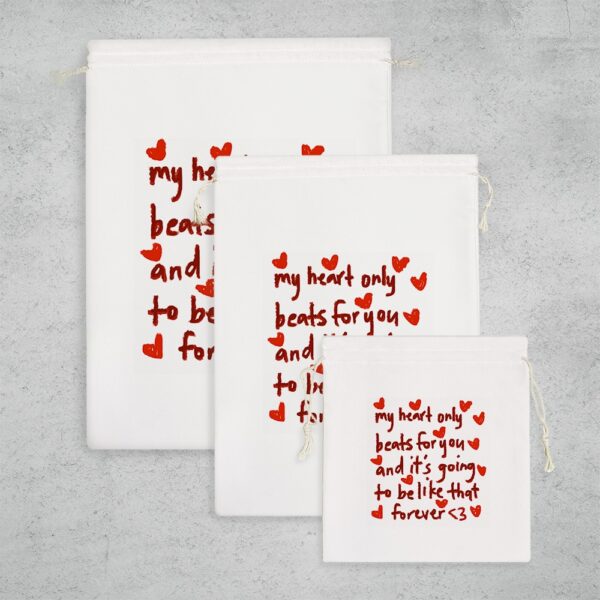 my he
beats
and i
to be
for
my heart only
beats for you
and it's
to be
for
my heart only
beats for you
and it's going
to be like that
forever <3